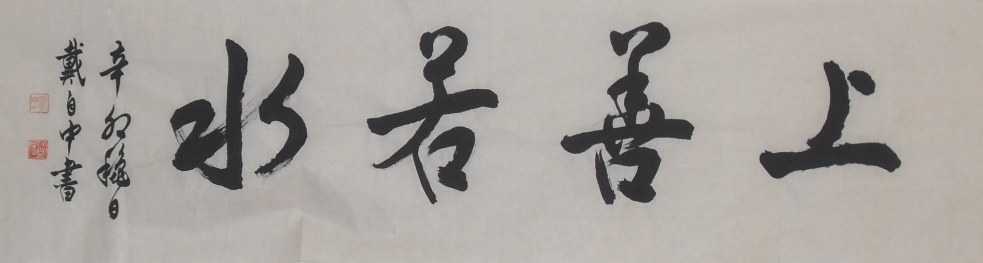 上善若水
辛卯穐日
戴自中書